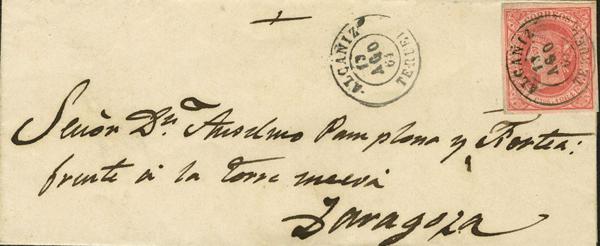 ALCAÑIZ TERUEL
13 AGO 64
CORREOS
ALCAÑIZ TERUEL
13 AGO
Señor Dn Anselmo Pamplona y Fortea:
frente á la torre nueva
Zaragoza